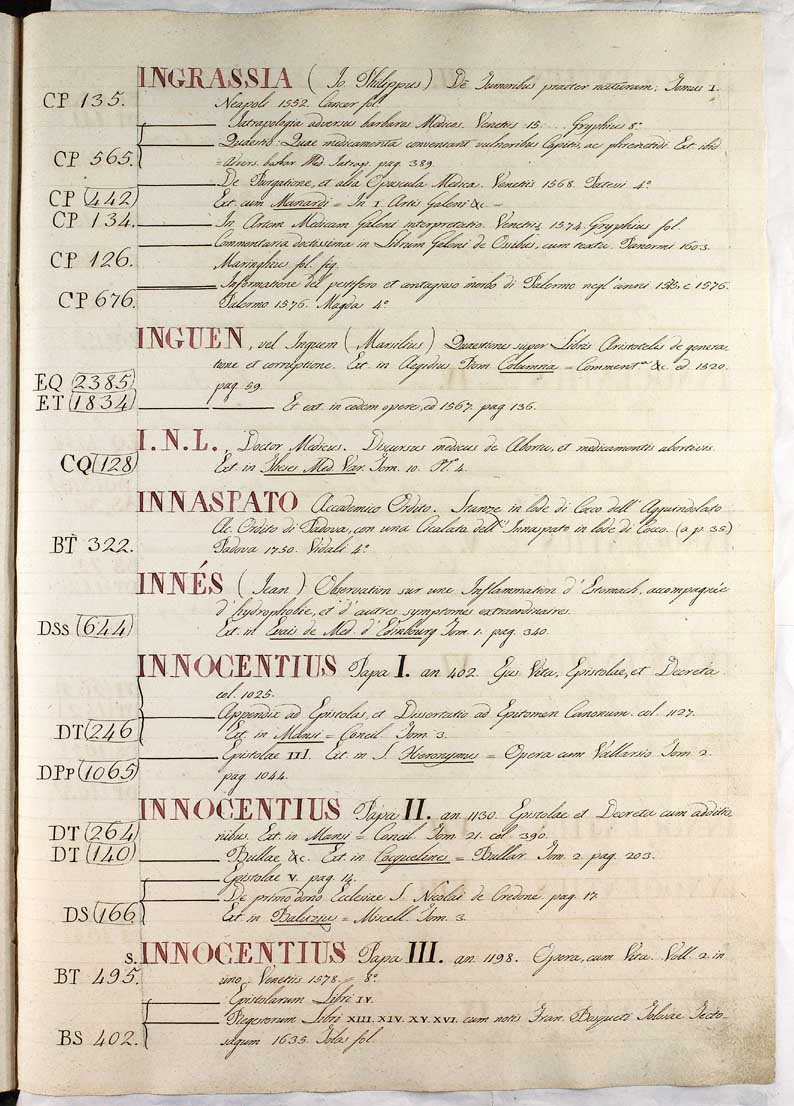 INGRASSIA ( Jo. Philippus ) De Tumoribus praeter naturam; Tomus I.
CP 135. Neapoli 1552. Cancer fol.
Jatrapologia adversus barbaros Medicos. Venetiis 15.... Gryphius 8°
Quaestio: Quae medicamenta conveniant vulneribus Capitis, ac phrenetidi. Ext. ibid
CP 565. = Advers. barbar Med. Jatrap. pag. 389.
De Purgatione, et alia Opuscula Medica. Venetiis 1568. Patevi 4°
CP 442 Ext. cum Manardi = In I. Artis Galeni &c -
CP 134. In Artem Medicam Galeni interpretatio. Venetiis 1574. Gryphius fol.
Commentaria doctissima in Librum Galeni de Ossibus, cum textu. Panormi 1603.
CP 126. Maringhus fol. fig.
Informatione del pestifero et contagioso morbo di Palermo negl'anni 1575, e 1576.
CP 676. Palermo 1576. Mayda 4°
INGUEN, vel Inguem ( Marsilius ) Quaestiones super Libris Aristotelis de genera-
tione et corruptione. Ext. in Aegidius Rom. Columna = Comment.ª &c. ed. 1520.
EQ 2385 pag. 59.
ET 1834 Et ext. in eadem opere, ed 1567. pag 136.
I.N.L., Doctor Medicus. Discursus medicus de Abortu, et medicamentis abortivis.
CQ 128 Ext. in Theses Med Var. Tom. 10. N.° 4.
INNASPATO Accademico Ordito. Stanze in lode di Cecco dell'Agguindolato
Ac. Ordito di Padova, con una Cicalata dell'Innaspato in lode di Cecco. (a p. 35.)
BT 322. Padova 1750. Vidali 4°
INNÉS ( Jean ) Observation sur une Inflammation d'Estomach, accompagnée
d'hydrophobie, et d'autres symptomes extraordinaires.
DSs 644 Ext. in Essais de Med. d'Edinbourg Tom. 1. pag. 340.
INNOCENTIUS Papa I. an 402. Ejus Vita, Epistolae, et Decreta.
col. 1025.
Appendix ad Epistolas, et Dissertatio ad Epitomen Canonum. col. 1127.
DT 246 Ext. in Mansi = Concil. Tom. 3.
Epistolae III. Ext. in S. Hieronymus = Opera cum Vallarsio Tom 2.
DPp 1065 pag 1044.
INNOCENTIUS Papa II. an 1130. Epistolae et Decreta cum additio-
DT 264 nibus. Ext. in Mansi = Concil. Tom. 21. col. 390.
DT 140 Bullae &c. Ext. in Cocquelines = Bullar. Tom 2. pag. 203.
Epistolae V. pag. 14.
De primo dono Ecclesiae S. Nicolai de Credone pag. 17.
DS 166 Ext. in Baluzius = Miscell Tom. 3.
S. INNOCENTIUS Papa III. an. 1198. Opera, cum Vita. Voll. 2. in
BT 495. uno. Venetiis 1578. = 8°
Epistolarum Libri IV.
Regestorum Libri XIII. XIV. XV. XVI. cum notis Fran. Bosqueti. Tolosae Tecto-
BS 402. sagum 1635. Tolos fol.